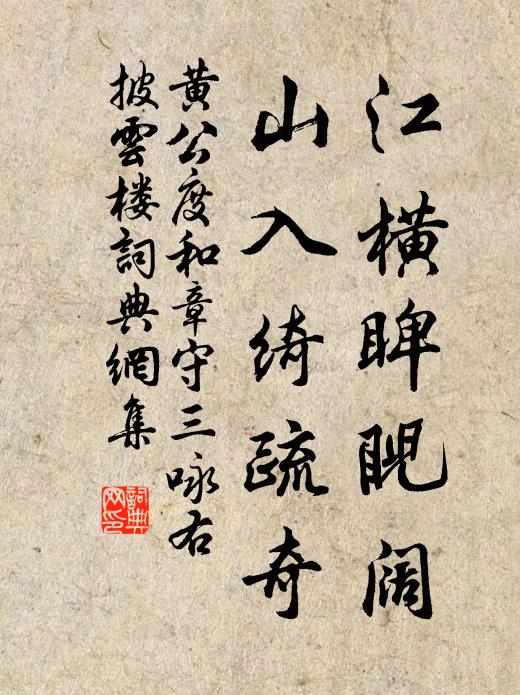 江横睥睨阔
山入绮疏奇
黄公度和章守三咏右
披雲楼詞典網集
詞典网印